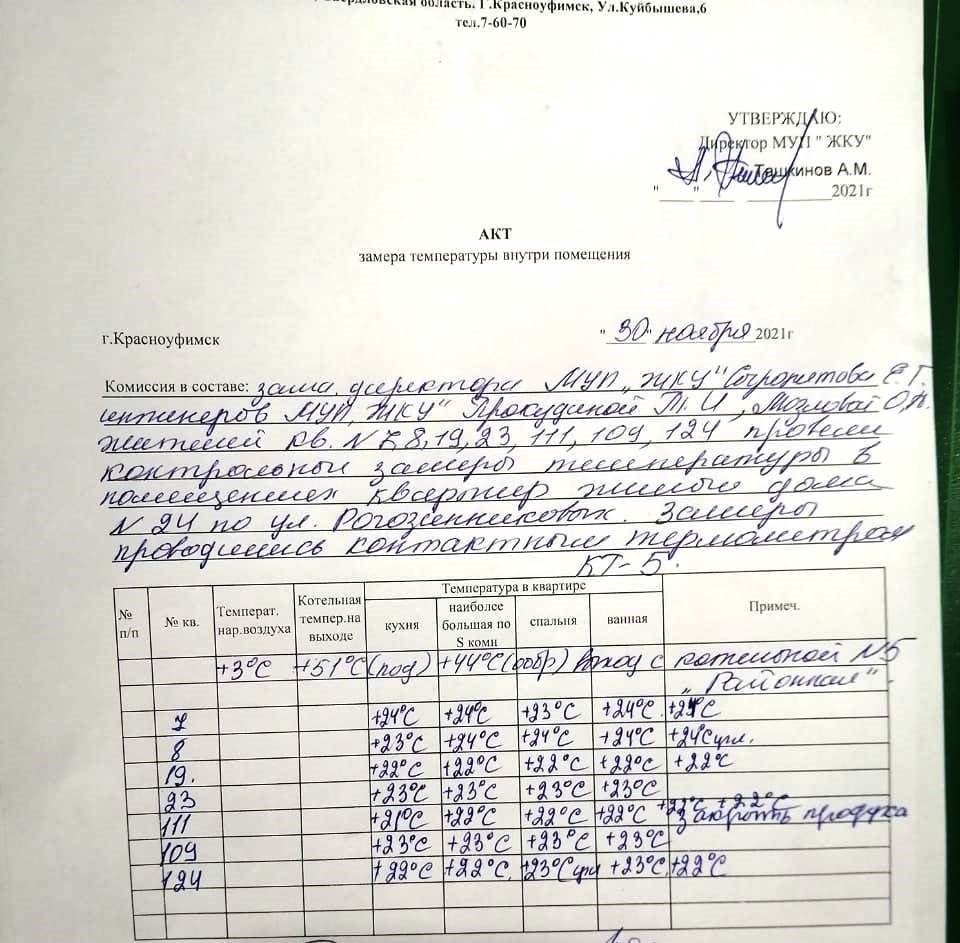 область. Г.Красноуфимск, Ул.Куйбышева,6
тел.7-60-70
УТВЕРЖДАЮ:
Директор МУП " ЖКУ"
Ташкинов А.М.
"____" ____ __________2021г
АКТ
замера температуры внутри помещения
г.Красноуфимск "30" ноября 2021г
Комиссия в составе: зама. директора МУП „ЖКУ" Е.Г.
инженеров МУП „ЖКУ" Прокудиной Т.И, О.Н.
жителей кв. N 7, 8, 19, 23, 111, 109, 124 провели
контрольные замеры температуры в
помещениях квартир жилого дома
N 24 по ул. Рогозинниковых. Замеры
проводились контактным термометром
КТ-5.
№ п/п № кв. Температ. нар.воздуха Котельная темпер.на выходе Температура в квартире Примеч.
кухня наиболее большая по S комн спальня ванная
+3°С +51°С (под) +44°С (обр) Выход с котельной N5
„Районная".
7 +24°С +24°С +23°С +24°С +24°С
8 +23°С +24°С +24°С +24°С +24°С угл.
19. +22°С +22°С +22°С +22°С +22°С
23 +23°С +23°С +23°С +23°С +22°С +22°С
111 +21°С +22°С +22°С +22°С закрыть продуха
109 +23°С +23°С +23°С +23°С
124 +22°С +22°С. +23°С угл +23°С. +22°С